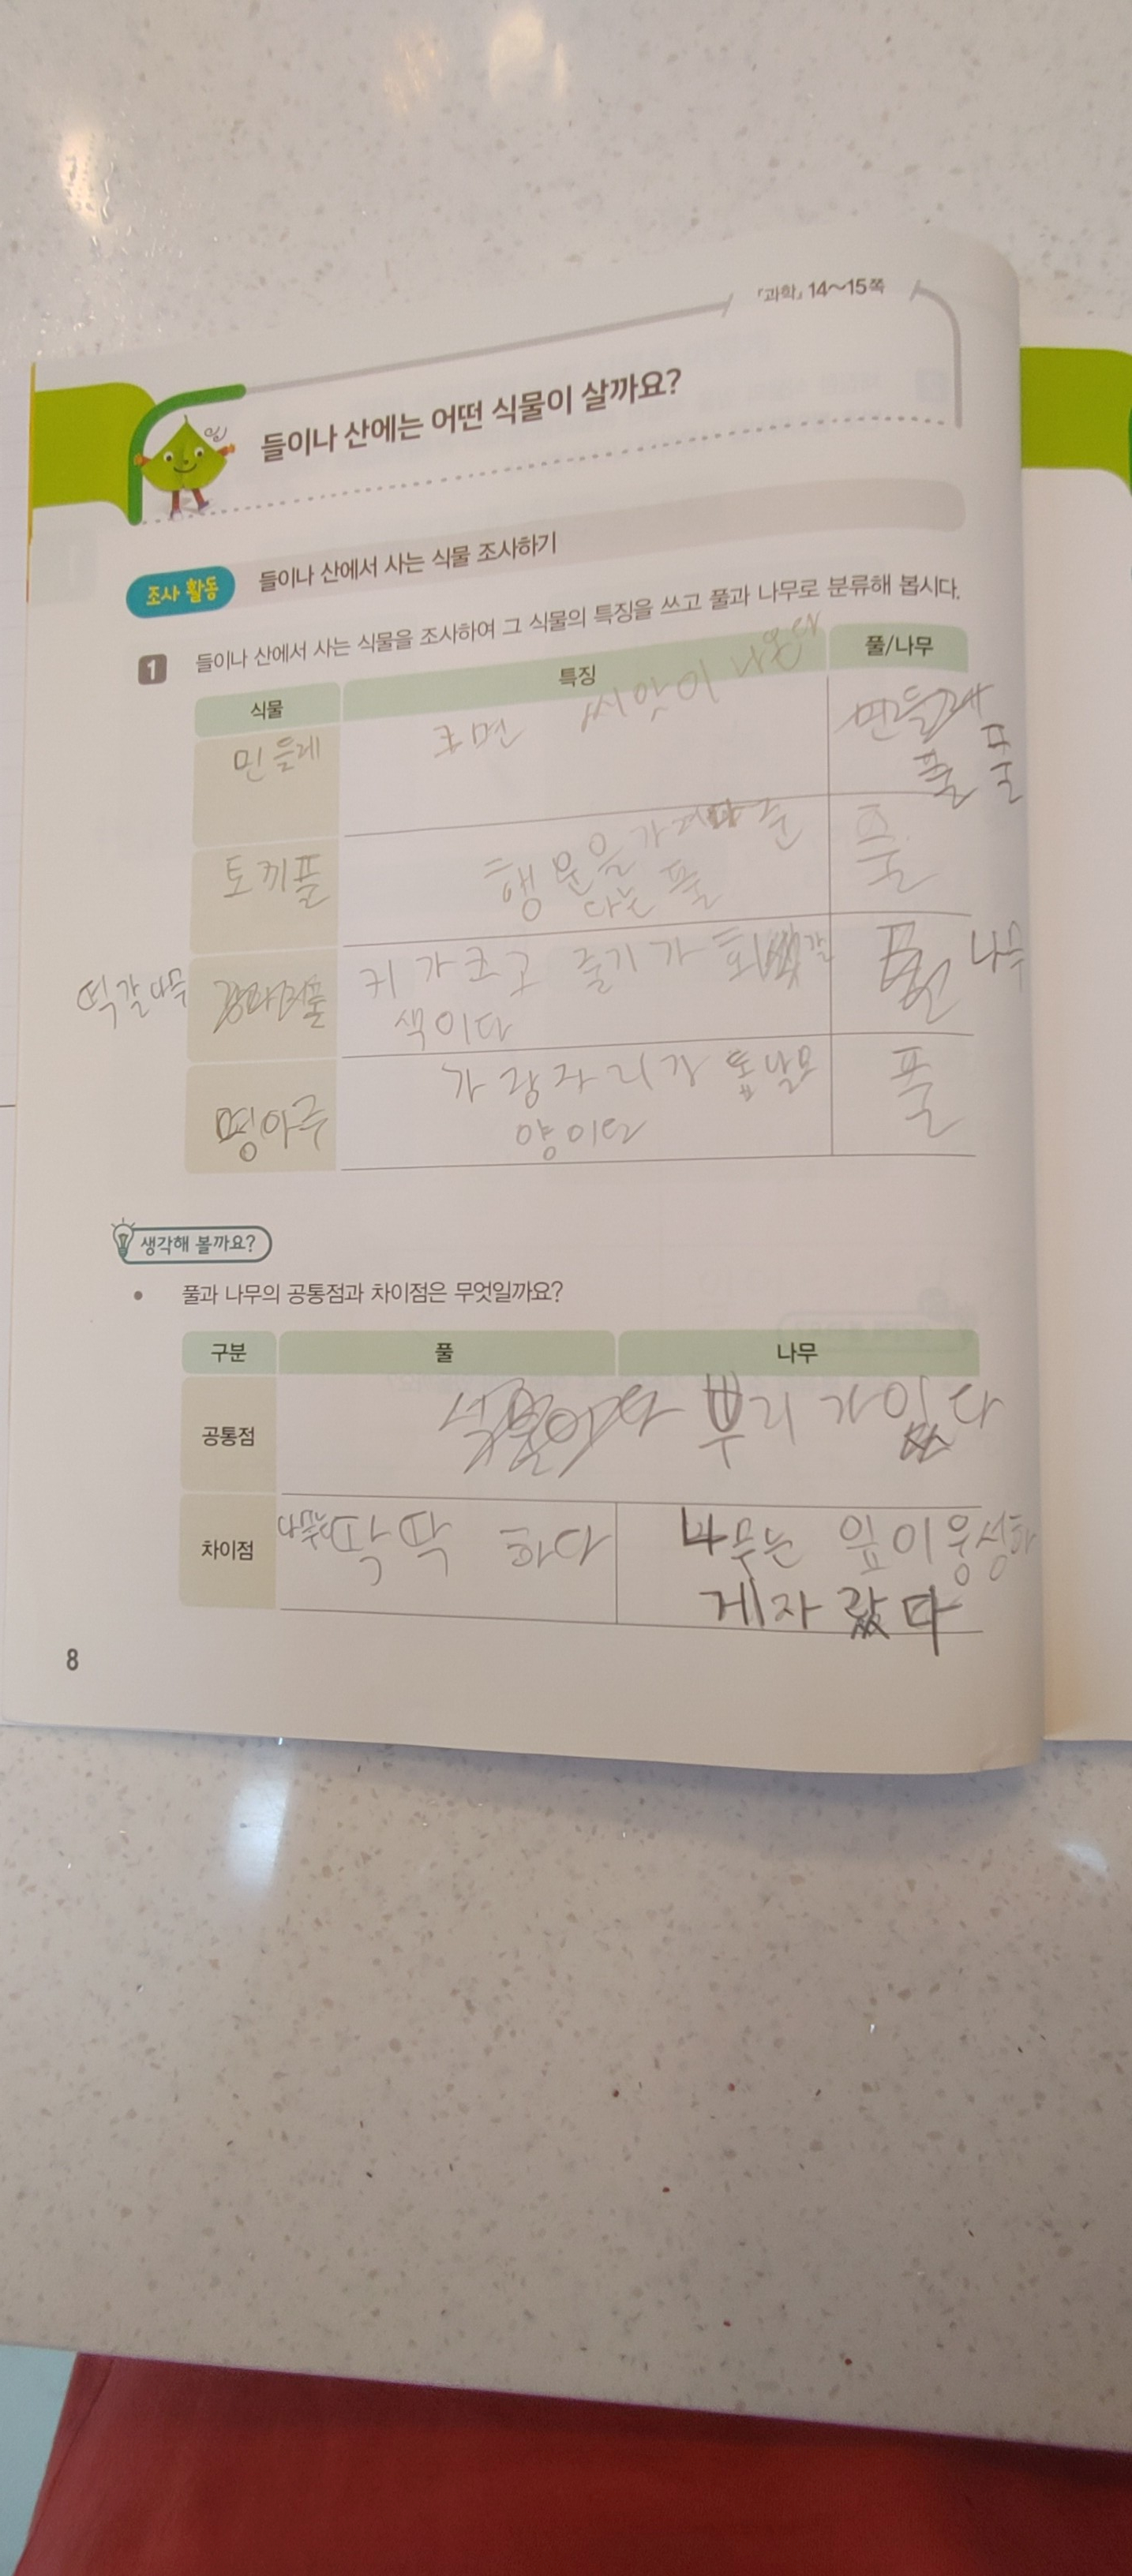 「과학」 14~15쪽
들이나 산에는 어떤 식물이 살까요?
조사 활동 들이나 산에서 사는 식물 조사하기
1 들이나 산에서 사는 식물을 조사하여 그 식물의 특징을 쓰고 풀과 나무로 분류해 봅시다.
식물 특징 풀/나무
민들레 후면 씨앗이 나온다 민들레
풀 풀
토끼풀 행운을 가져다 준 풀
다는 풀
떡갈나무 키가 크고 줄기가 회갈 나무
색이다
명아주 가장자리가 톱날모 풀
양이다
생각해 볼까요?
• 풀과 나무의 공통점과 차이점은 무엇일까요?
구분 풀 나무
공통점 식물이다 뿌리가있다
차이점 하다 나무는 잎이 웅성하
게자랐다
8